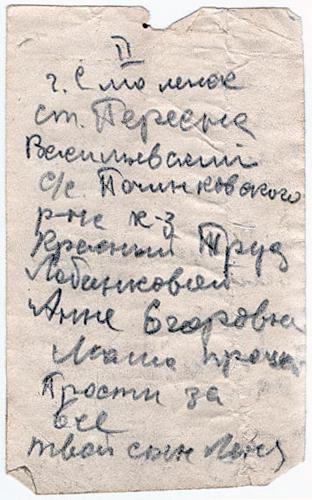 II
г. Смоленск
ст. Пересна
Васильевский
с/с Починковского
р-не к-з
Красный Труд
Лобанковой
Анне Егоровне
Мама прощай
Прости за
все
твой сын Леня